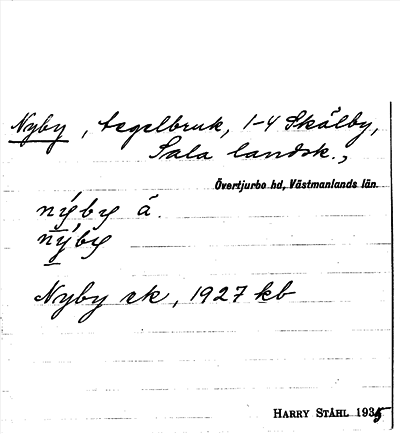 Nyby, tegelbruk, 1-4 Skälby,
Sala landsk.,
Övertjurbo hd, Västmanlands län.
nýby ä.
nýby
Nyby ek, 1927 kb
HARRY STÅHL 1935